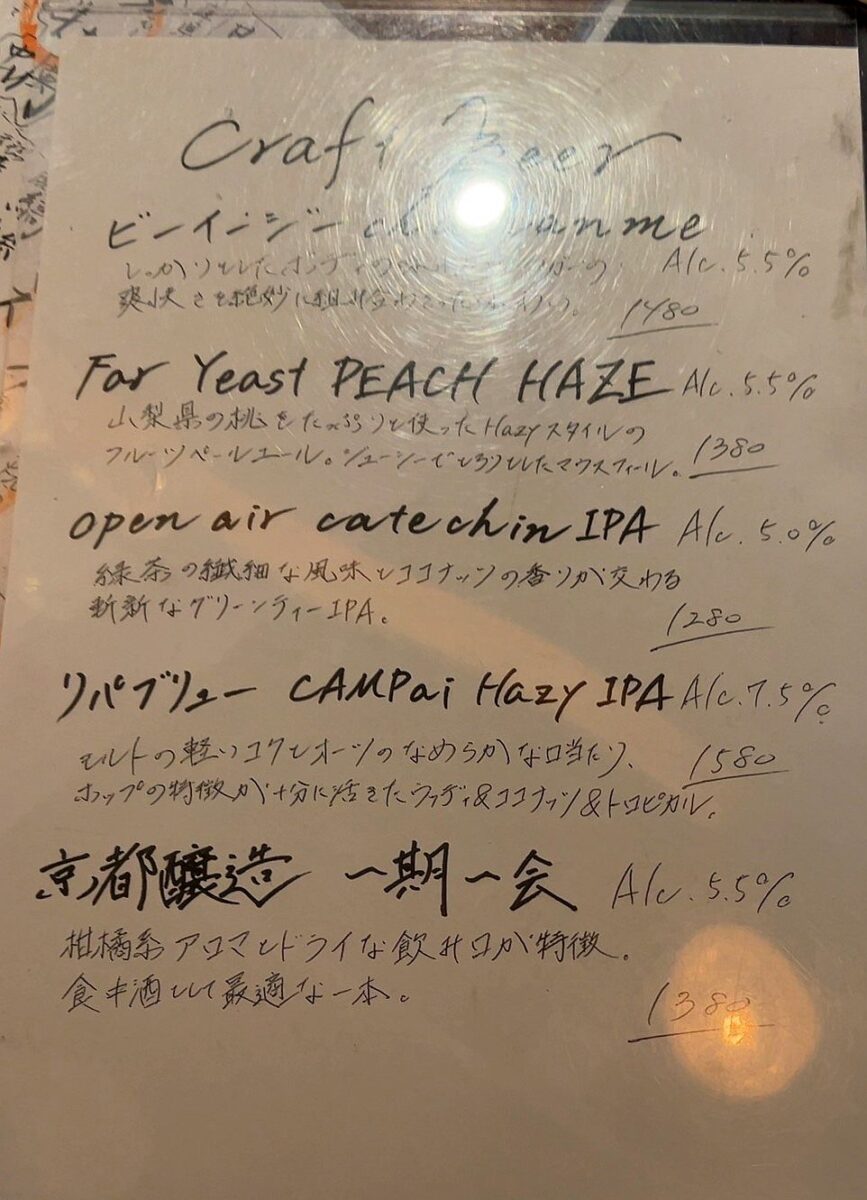 Craft Beer
ビーイージー
Alc. 5.5%
しっかりとしたボディの
爽快さを絶妙に組み合わせた
1480
Far Yeast PEACH HAZE Alc. 5.5%
山梨県の桃をたっぷりと使ったHazyスタイルの
フルーツペールエール。ジューシーでとろりとしたマウスフィール。
1380
open air catechin IPA Alc. 5.0%
緑茶の繊細な風味とココナッツの香りが交わる
斬新なグリーンティーIPA。
1280
リパブリュー CAMPai Hazy IPA Alc. 7.5%
モルトの軽いコクとオーツのなめらかな口当たり、
1580
ホップの特徴が十分に活きたウッディ&ココナッツ&トロピカル。
京都醸造 一期一会 Alc. 5.5%
柑橘系アロマとドライな飲み口が特徴。
食中酒として最適な一本。
1380